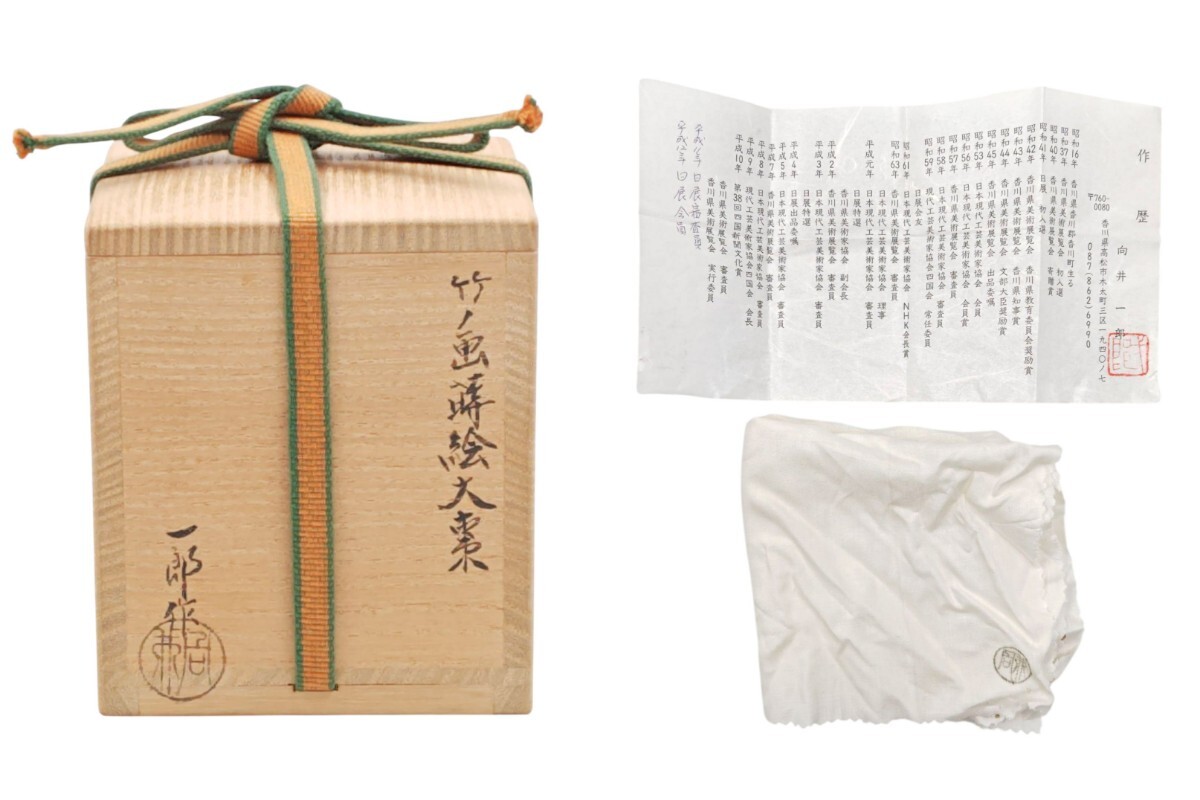 竹ノ画蒔絵大棗
一郎作
作歴 向井一郎
〒760-0080 香川県高松市木太町三区一九四〇ノ七
087(862)6990
昭和16年 香川県香川郡香川町生る
昭和37年 香川県美術展覧会 初入選
昭和40年 香川県美術展覧会 寄贈賞
昭和41年 日展 初入選
昭和42年 香川県美術展覧会 香川県教育委員会奨励賞
昭和43年 香川県美術展覧会 香川県知事賞
昭和44年 香川県美術展覧会 文部大臣奨励賞
昭和45年 香川県美術展覧会 出品委嘱
昭和53年 日本現代工芸美術家協会 会員
昭和56年 日本現代工芸美術家協会 会員賞
昭和57年 香川県美術展覧会 審査員
昭和58年 日本現代工芸美術家協会 審査員
昭和59年 現代工芸美術家協会四国会 常任委員
日展会友
昭和61年 日本現代工芸美術家協会 NHK会長賞
昭和63年 香川県美術展覧会 審査員
日本現代工芸美術家協会 理事
平成元年 日本現代工芸美術家協会 審査員
日展特選
平成2年 香川県美術家協会 副会長
香川県美術展覧会 審査員
平成3年 日本現代工芸美術家協会 審査員
日展特選
平成4年 日展出品委嘱
平成5年 日本現代工芸美術家協会 審査員
平成7年 香川県美術展覧会 審査員
平成8年 日本現代工芸美術家協会 審査員
平成9年 現代工芸美術家協会四国会 会長
平成10年 第38回四国新聞文化賞
香川県美術展覧会 審査員
香川県美術展覧会 実行委員
日展審査員
日展会員